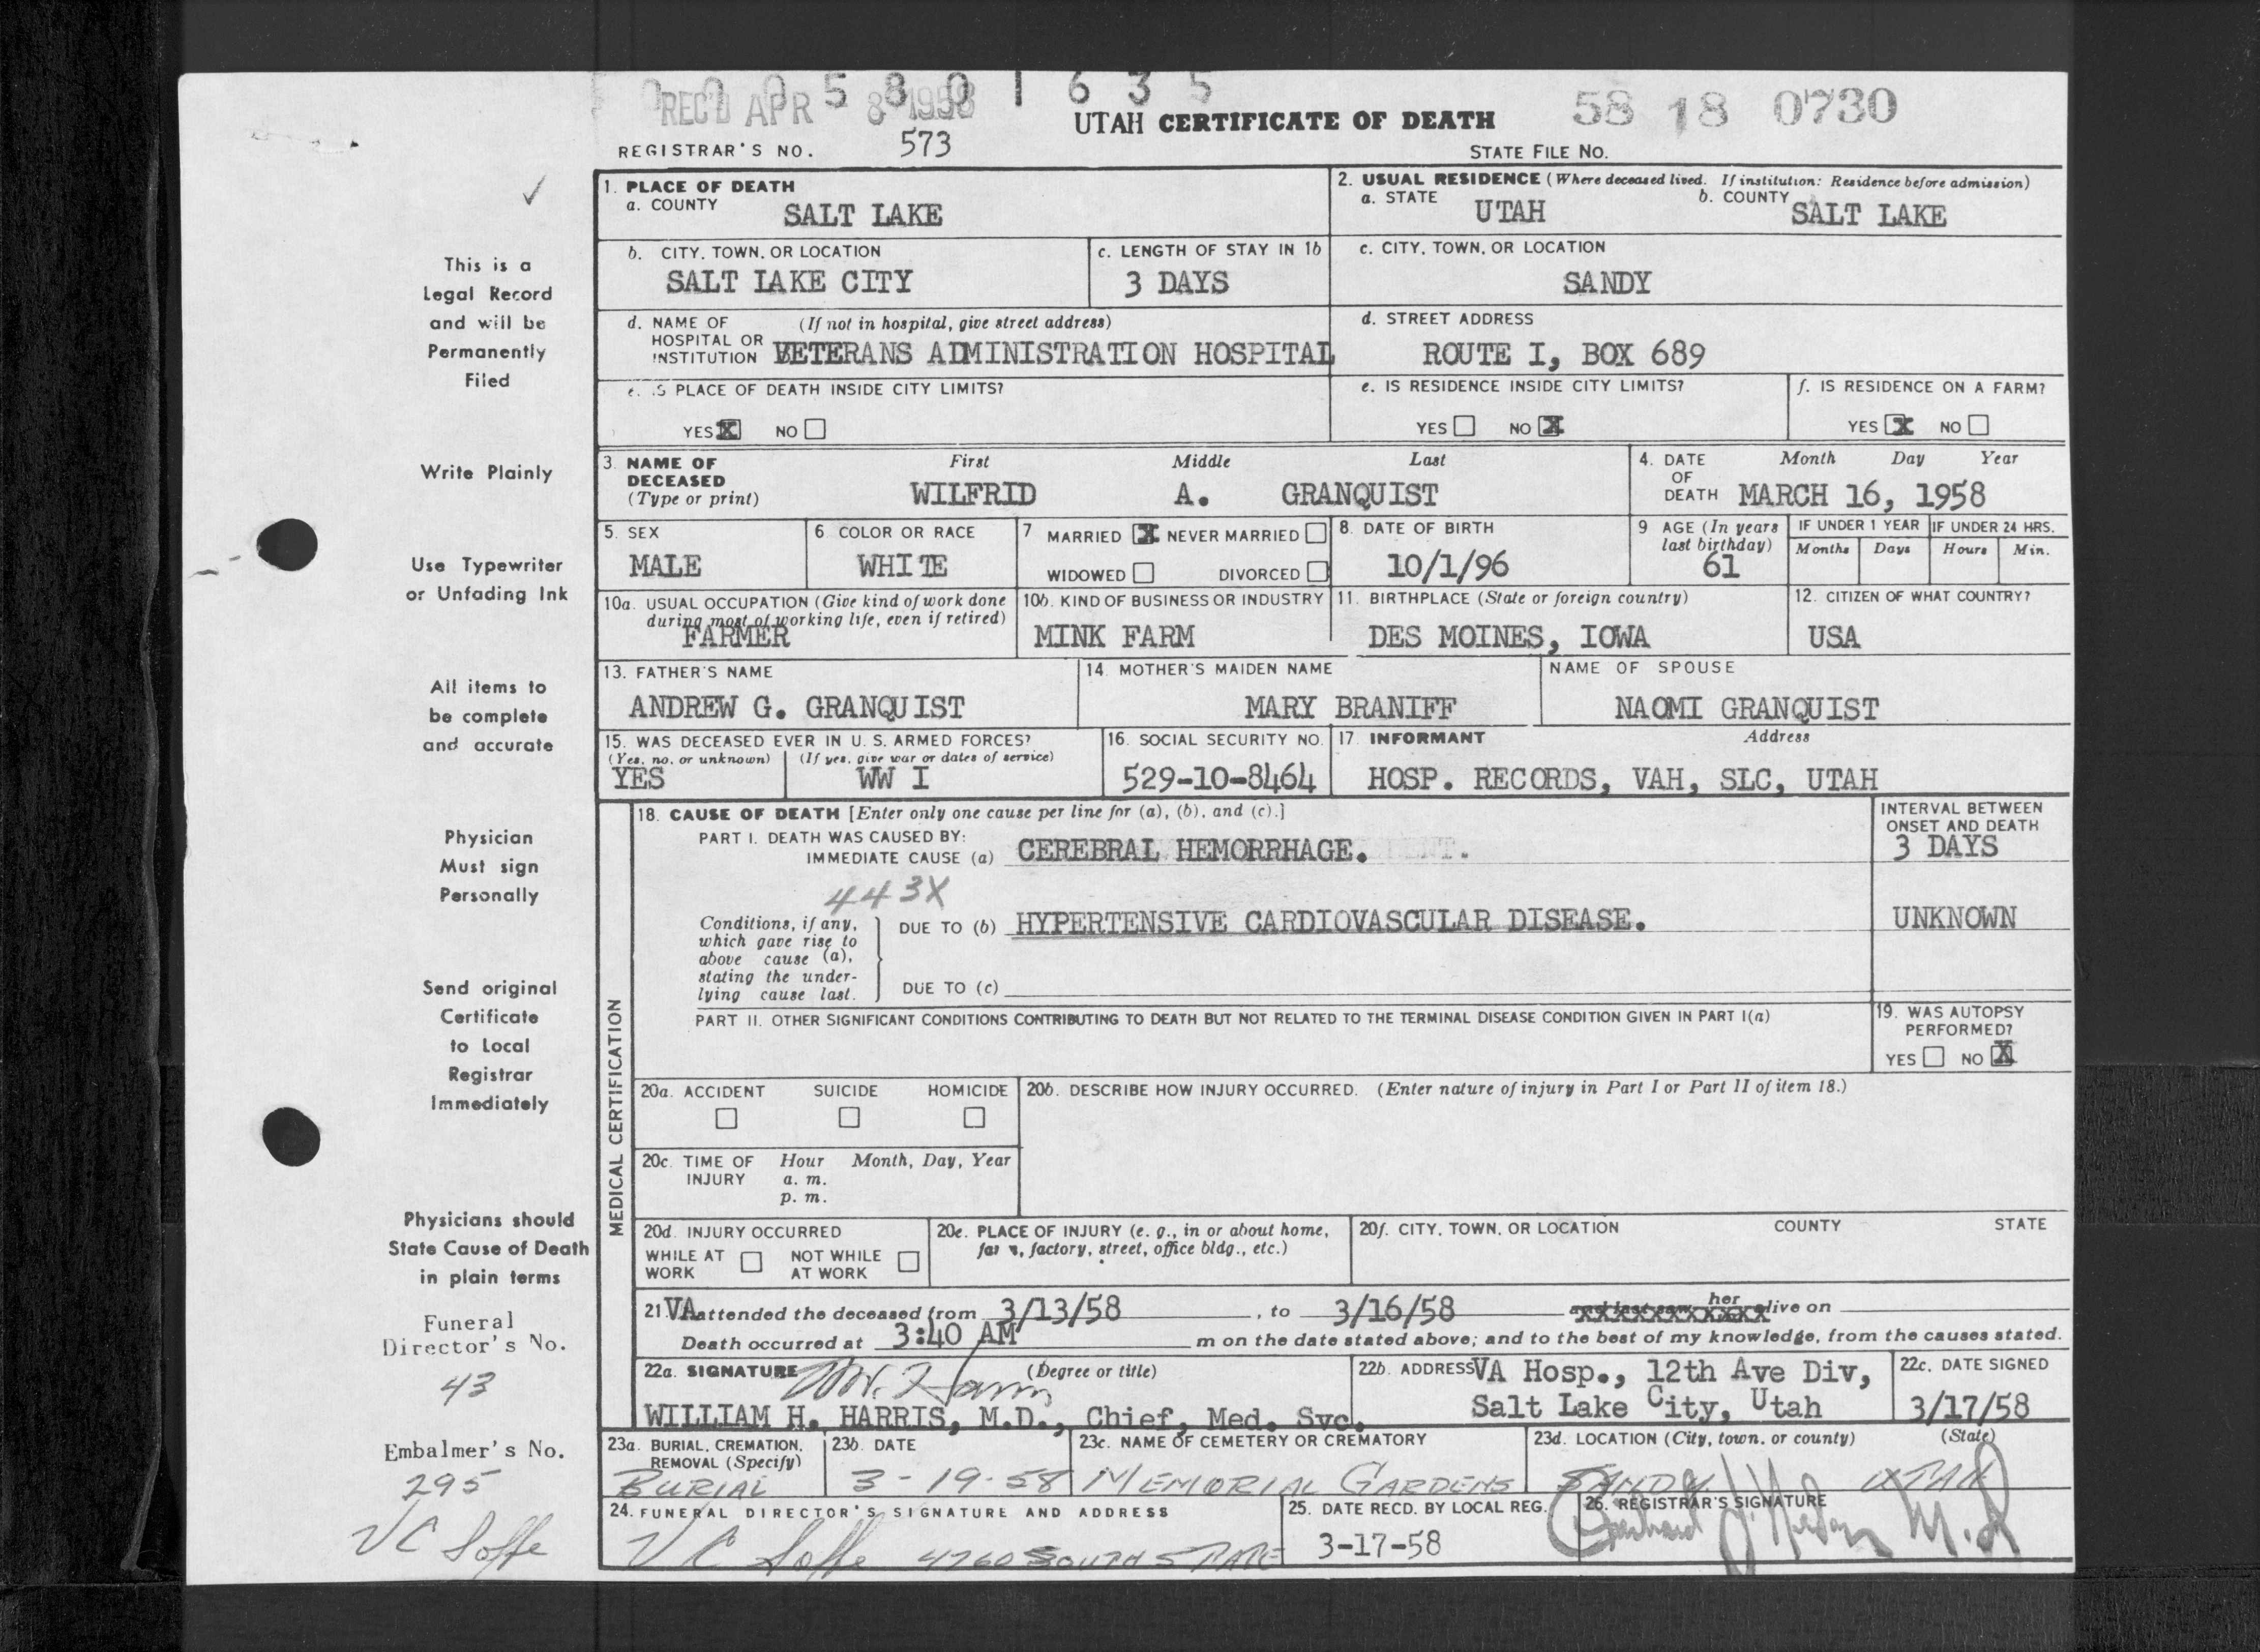 0 0 0 5 8 0 1 6 3 5
REC'D APR 8 1958
58 18 0730
UTAH CERTIFICATE OF DEATH
REGISTRAR'S NO. 573
STATE FILE NO.
✓
This is a
Legal Record
and will be
Permanently
Filed
Write Plainly
Use Typewriter
or Unfading Ink
All items to
be complete
and accurate
Physician
Must sign
Personally
Send original
Certificate
to Local
Registrar
Immediately
Physicians should
State Cause of Death
in plain terms
Funeral
Director's No.
43
Embalmer's No.
295
V C Soffe
1. PLACE OF DEATH
a. COUNTY SALT LAKE
2. USUAL RESIDENCE (Where deceased lived. If institution: Residence before admission)
a. STATE UTAH b. COUNTY SALT LAKE
b. CITY, TOWN, OR LOCATION
SALT LAKE CITY
c. LENGTH OF STAY IN 1b
3 DAYS
c. CITY, TOWN, OR LOCATION
SANDY
d. NAME OF (If not in hospital, give street address)
HOSPITAL OR
INSTITUTION VETERANS ADMINISTRATION HOSPITAL
d. STREET ADDRESS
ROUTE I, BOX 689
e. IS PLACE OF DEATH INSIDE CITY LIMITS?
YES X NO
e. IS RESIDENCE INSIDE CITY LIMITS?
YES NO X
f. IS RESIDENCE ON A FARM?
YES X NO
3. NAME OF
DECEASED
(Type or print)
First Middle Last
WILFRID A. GRANQUIST
4. DATE
OF
DEATH
Month Day Year
MARCH 16, 1958
5. SEX
MALE
6 COLOR OR RACE
WHITE
7 MARRIED X NEVER MARRIED
WIDOWED DIVORCED
8. DATE OF BIRTH
10/1/96
9 AGE (In years
last birthday)
61
IF UNDER 1 YEAR
Months Days
IF UNDER 24 HRS.
Hours Min.
10a. USUAL OCCUPATION (Give kind of work done
during most of working life, even if retired)
FARMER
10b. KIND OF BUSINESS OR INDUSTRY
MINK FARM
11. BIRTHPLACE (State or foreign country)
DES MOINES, IOWA
12. CITIZEN OF WHAT COUNTRY?
USA
13. FATHER'S NAME
ANDREW G. GRANQUIST
14. MOTHER'S MAIDEN NAME
MARY BRANIFF
NAME OF SPOUSE
NAOMI GRANQUIST
15. WAS DECEASED EVER IN U. S. ARMED FORCES?
(Yes, no, or unknown) (If yes, give war or dates of service)
YES WW I
16. SOCIAL SECURITY NO.
529-10-8464
17. INFORMANT Address
HOSP. RECORDS, VAH, SLC, UTAH
MEDICAL CERTIFICATION
18. CAUSE OF DEATH [Enter only one cause per line for (a), (b), and (c).]
PART I. DEATH WAS CAUSED BY:
IMMEDIATE CAUSE (a) CEREBRAL HEMORRHAGE.
INTERVAL BETWEEN
ONSET AND DEATH
3 DAYS
443X
Conditions, if any,
which gave rise to
above cause (a),
stating the under-
lying cause last.
DUE TO (b) HYPERTENSIVE CARDIOVASCULAR DISEASE.
UNKNOWN
DUE TO (c)
PART II. OTHER SIGNIFICANT CONDITIONS CONTRIBUTING TO DEATH BUT NOT RELATED TO THE TERMINAL DISEASE CONDITION GIVEN IN PART I(a)
19. WAS AUTOPSY
PERFORMED?
YES NO X
20a. ACCIDENT SUICIDE HOMICIDE
20b. DESCRIBE HOW INJURY OCCURRED. (Enter nature of injury in Part I or Part II of item 18.)
20c. TIME OF Hour Month, Day, Year
INJURY a. m.
p. m.
20d. INJURY OCCURRED
WHILE AT NOT WHILE
WORK AT WORK
20e. PLACE OF INJURY (e. g., in or about home,
factory, street, office bldg., etc.)
20f. CITY, TOWN, OR LOCATION COUNTY STATE
21 VA attended the deceased from 3/13/58, to 3/16/58 and last saw her alive on
Death occurred at 3:40 AM m on the date stated above; and to the best of my knowledge, from the causes stated.
22a. SIGNATURE (Degree or title)
WILLIAM H. HARRIS, M.D., Chief, Med. Svc.
22b. ADDRESS VA Hosp., 12th Ave Div,
Salt Lake City, Utah
22c. DATE SIGNED
3/17/58
23a. BURIAL, CREMATION,
REMOVAL (Specify)
BURIAL
23b. DATE
3-19-58
23c. NAME OF CEMETERY OR CREMATORY
MEMORIAL GARDENS
23d. LOCATION (City, town, or county) (State)
SANDY UTAH
24. FUNERAL DIRECTOR'S SIGNATURE AND ADDRESS
V C Soffe 4760 SOUTH STATE
25. DATE RECD. BY LOCAL REG.
3-17-58
26. REGISTRAR'S SIGNATURE
M.D.